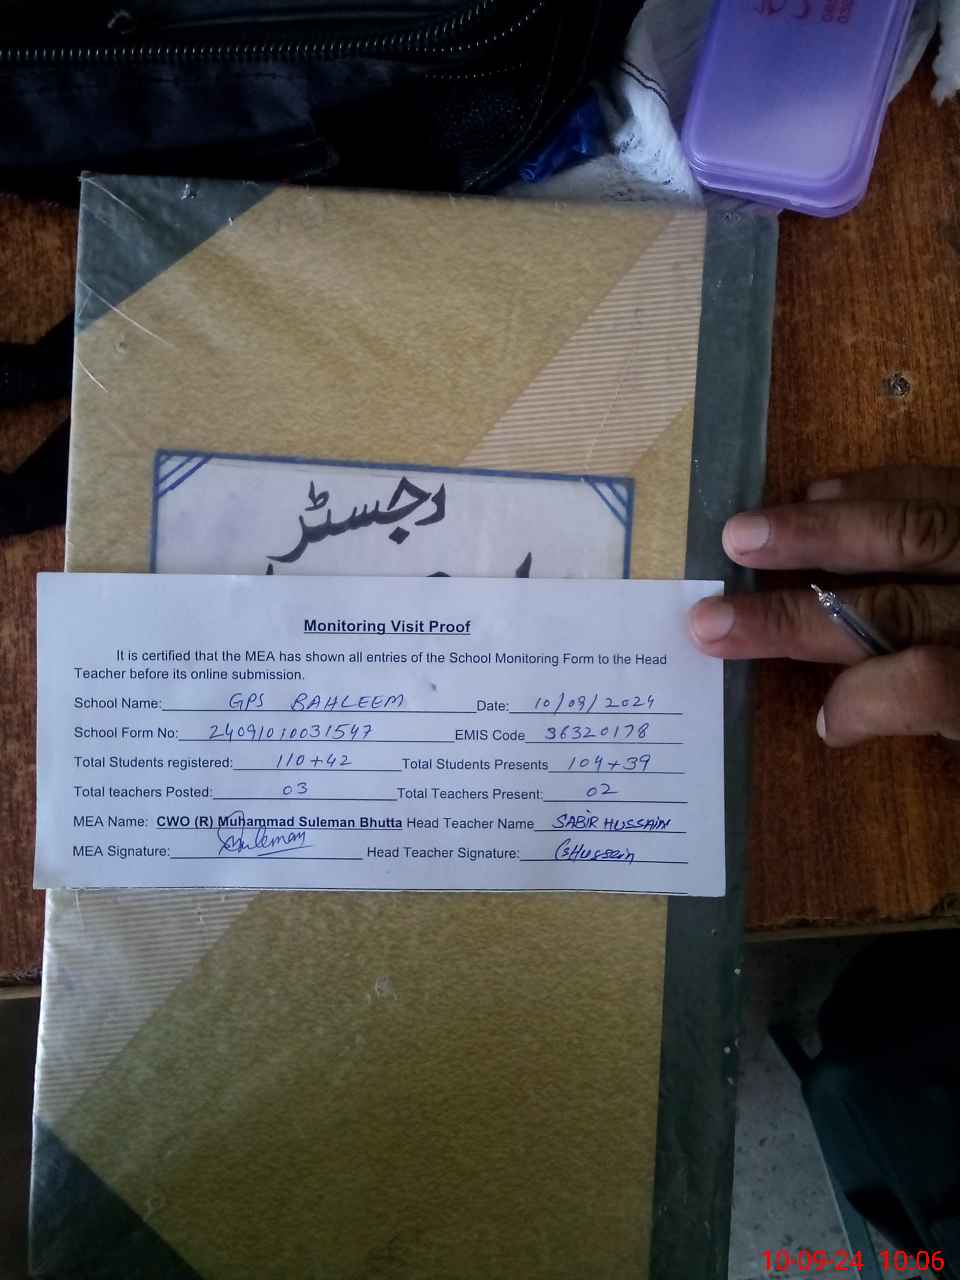 رجسٹر
Monitoring Visit Proof
It is certified that the MEA has shown all entries of the School Monitoring Form to the Head
Teacher before its online submission.
School Name: GPS BAHLEEM Date: 10/09/2024
School Form No: 24091010031547 EMIS Code 36320178
Total Students registered: 110+42 Total Students Presents 104+39
Total teachers Posted: 03 Total Teachers Present: 02
MEA Name: CWO (R) Muhammad Suleman Bhutta Head Teacher Name SABIR HUSSAIN
MEA Signature: Suleman Head Teacher Signature: SHussain
10-09-24 10:06